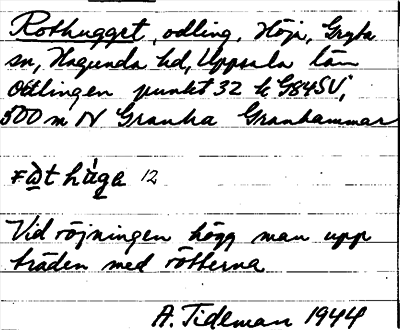 Rothugget, odling, Höja, Gryta
sn, Hagunda hd, Uppsala län
Odlingen punkt 32 k G84SV,
500 m N Granha Granhammar
hǻge 12
Vid röjningen högg man upp
träden med rötterna
A. Tideman 1944